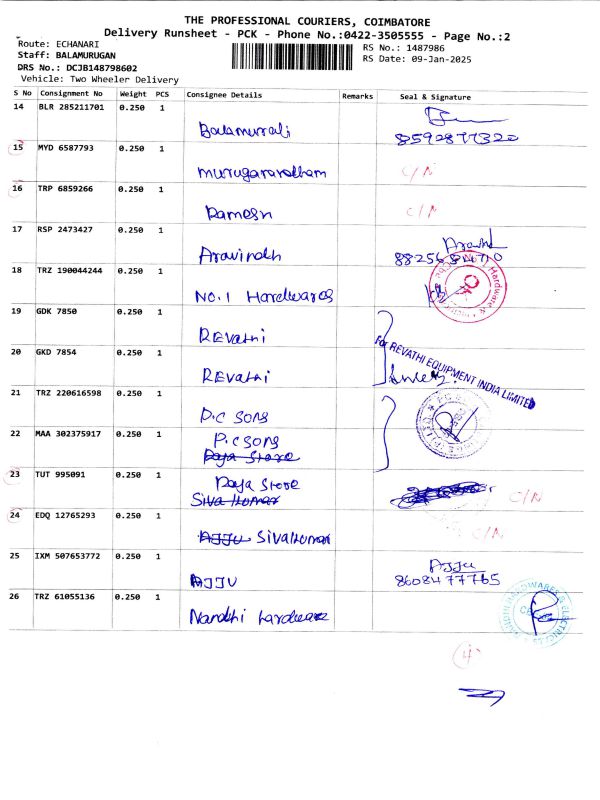 THE PROFESSIONAL COURIERS, COIMBATORE
Delivery Runsheet - PCK - Phone No.:0422-3505555 - Page No.:2
Route: ECHANARI
RS No.: 1487986
Staff: BALAMURUGAN
RS Date: 09-Jan-2025
DRS No.: DCJB148798602
Vehicle: Two Wheeler Delivery
S No Consignment No Weight PCS Consignee Details Remarks Seal & Signature
14 BLR 285211701 0.250 1
Balamurali 8592877320
15 MYD 6587793 0.250 1
C/N
16 TRP 6859266 0.250 1
Ramesh C/N
17 RSP 2473427 0.250 1
Aravindh Aravind
18 TRZ 190044244 0.250 1
No.1 Hardwares
19 GDK 7850 0.250 1
REvathi
FOR REVATHI EQUIPMENT INDIA LIMITED
20 GKD 7854 0.250 1
REvathi
21 TRZ 220616598 0.250 1
P.C SONS
22 MAA 302375917 0.250 1
P.C SONS
Raja Store
23 TUT 995091 0.250 1
Raja Store C/N
Siva Kumar
24 EDQ 12765293 0.250 1
C/N
AJJU SivaKumar
25 IXM 507653772 0.250 1
AJJU AJJU
8608477765
26 TRZ 61055136 0.250 1
Nandhi hardware
4